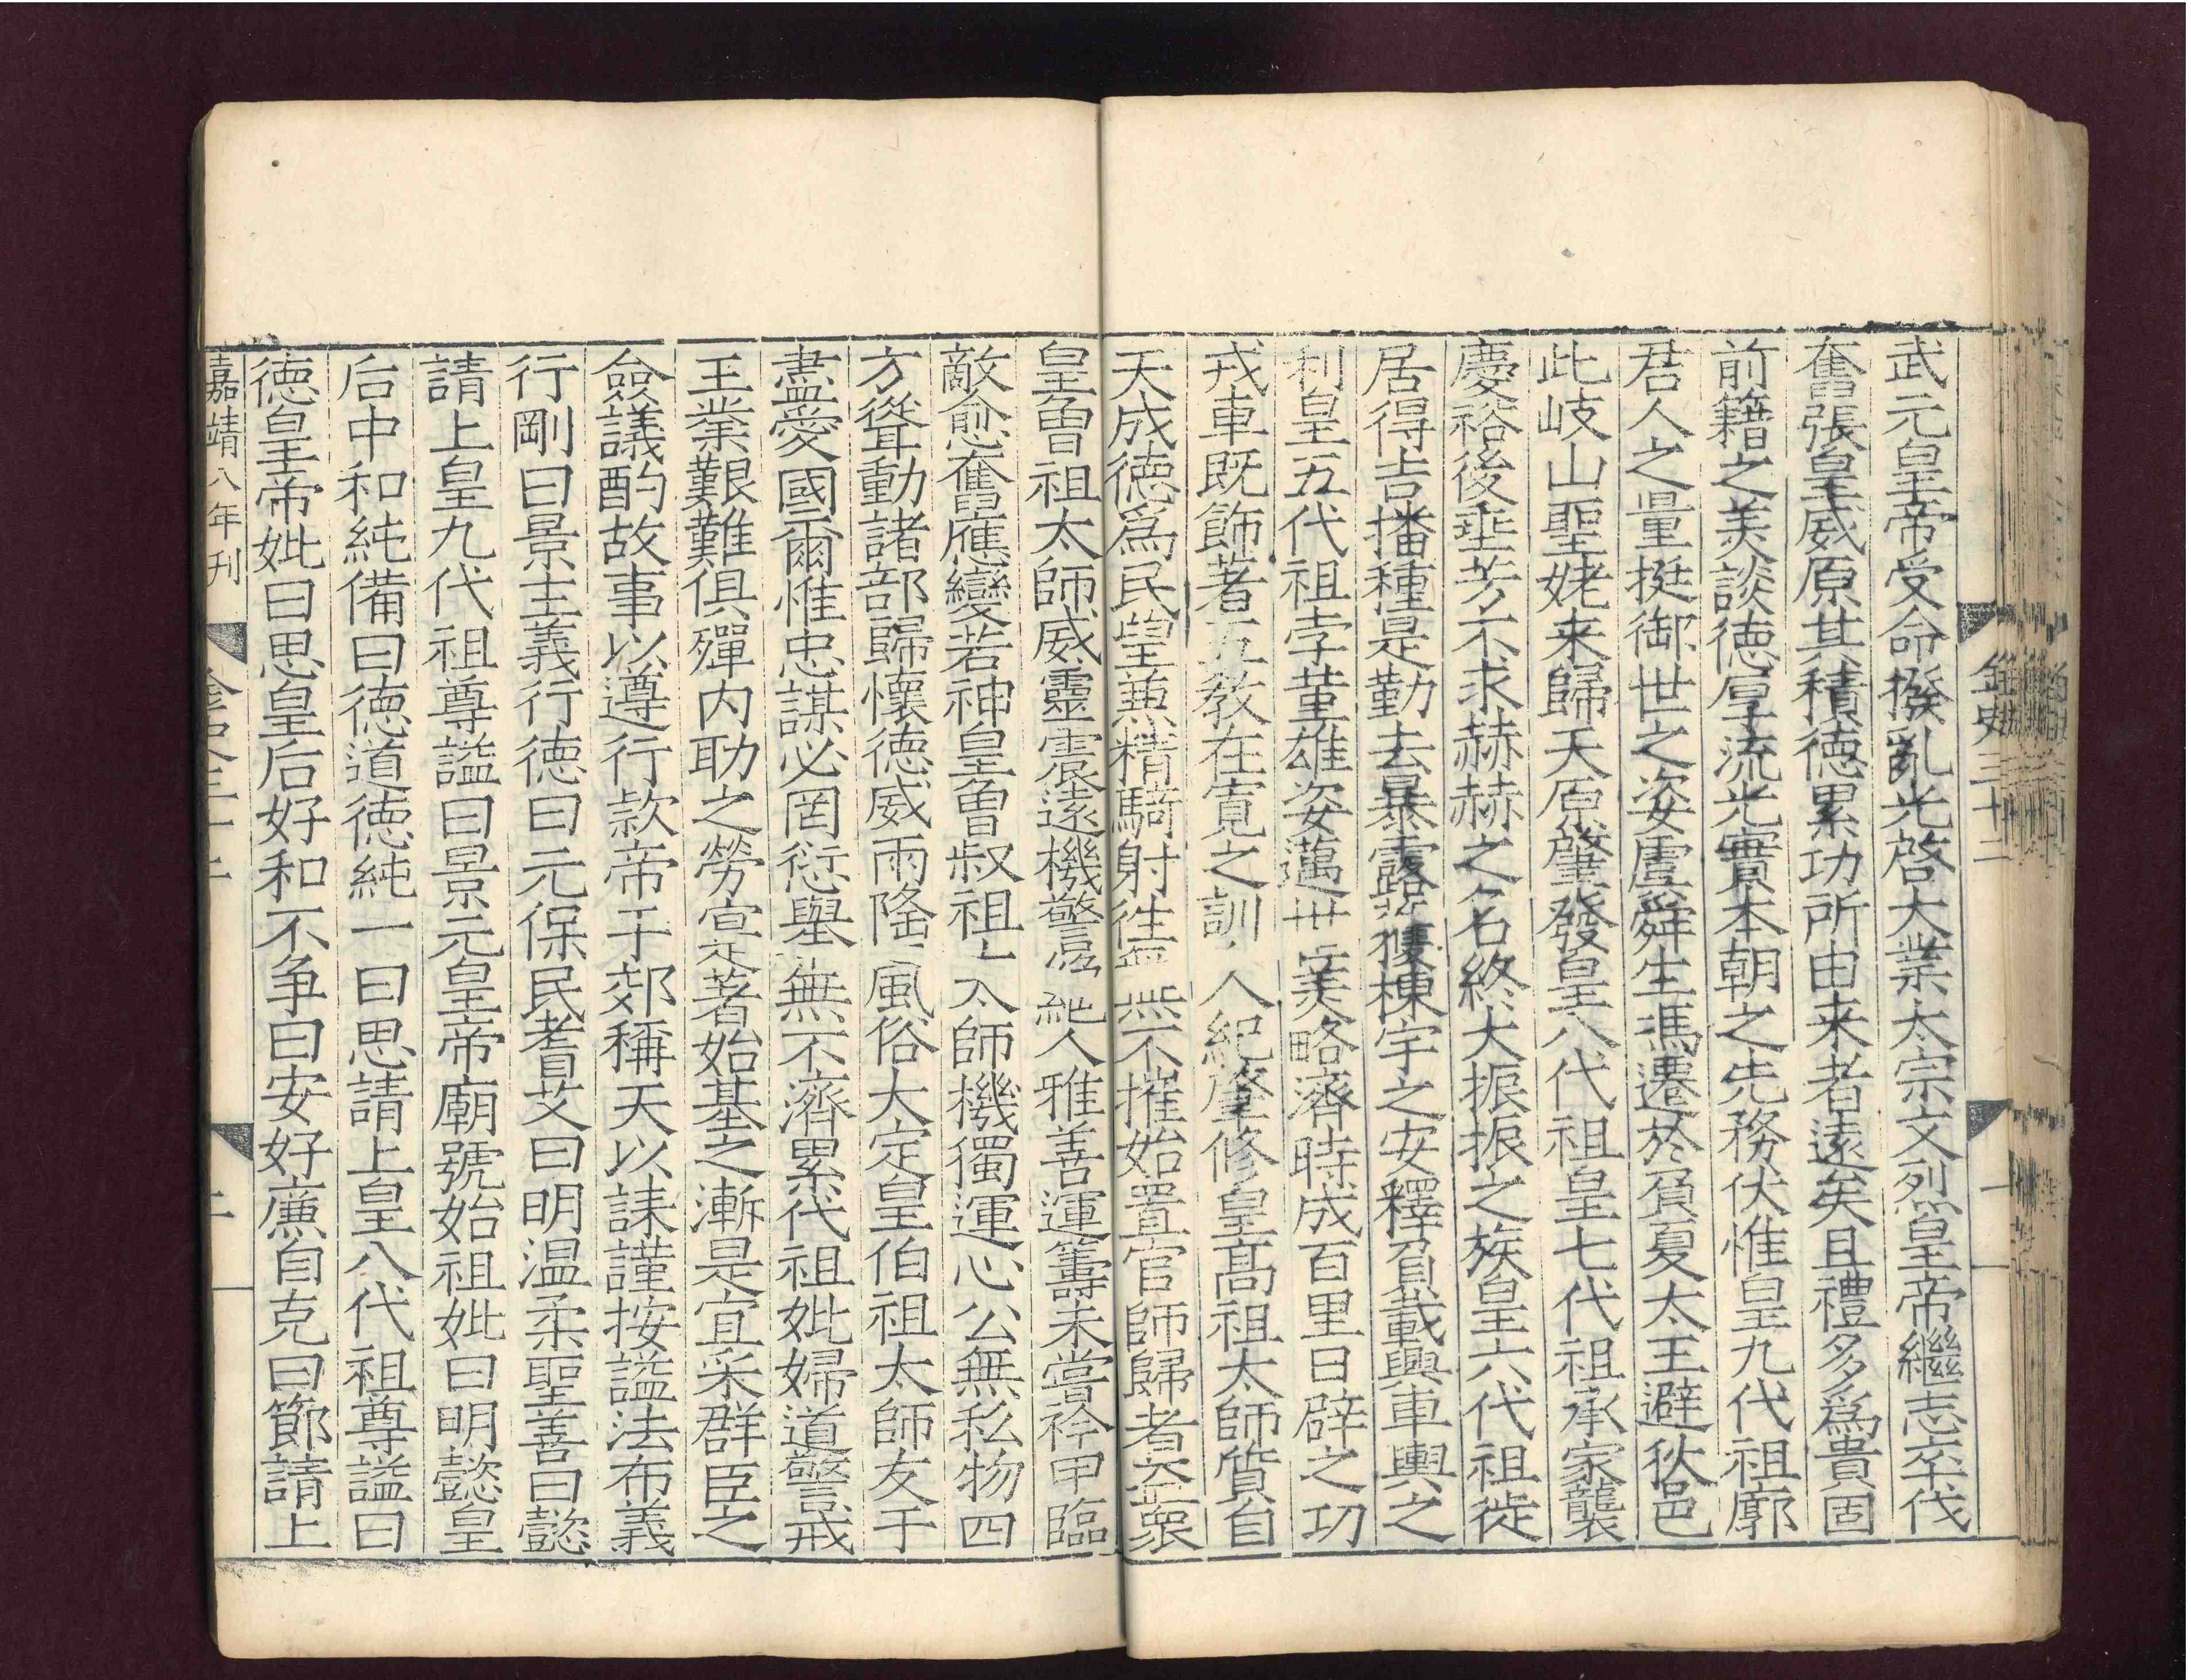 武元皇帝受命撥亂光啓大業太宗文烈皇帝繼志卒伐
奮張皇威原其積德累功所由来者遠矣且禮多爲貴固
前籍之美談德厚流光實本朝之先務伏惟皇九代祖廓
君人之量挺御世之姿虞舜生馮遷於負夏太王避狄邑
此岐山聖姥来歸天原肇發皇八代祖皇七代祖承家襲
慶裕後垂芳不求赫赫之名終大振振之族皇六代祖徙
居得吉播種是勤去暴露獲棟宇之安釋負載興車輿之
利皇五代祖孛堇雄姿邁世美略濟時成百里日辟之功
戎車既飾著五教在寛之訓人紀肇修皇髙祖太師質自
天成德爲民望兼精騎射徃無不摧始置官師歸者益衆
皇曾祖太師威靈震遠機警人雅善運籌未嘗衿甲臨
敵愈奮應變若神皇曾叔祖太師機獨運心公無私物四
方聳動諸部歸懷德威雨隆風俗大定皇伯祖太師友于
盡愛國爾惟忠謀必罔愆舉無不濟累代祖妣婦道警戒
王業艱難俱殫内助之勞寔著始基之漸是宜采群臣之
僉議酌故事以遵行款帝于郊稱天以誄謹按謚法布義
行剛曰景主義行德曰元保民耆艾曰明温柔聖善曰懿
請上皇九代祖尊謚曰景元皇帝廟號始祖妣曰明懿皇
后中和純備曰德道德純一曰思請上皇八代祖尊謚曰
德皇帝妣曰思皇后好和不争曰安好廉自克曰節請上
嘉靖八年刊
金史三十二
二
金史三十二
一